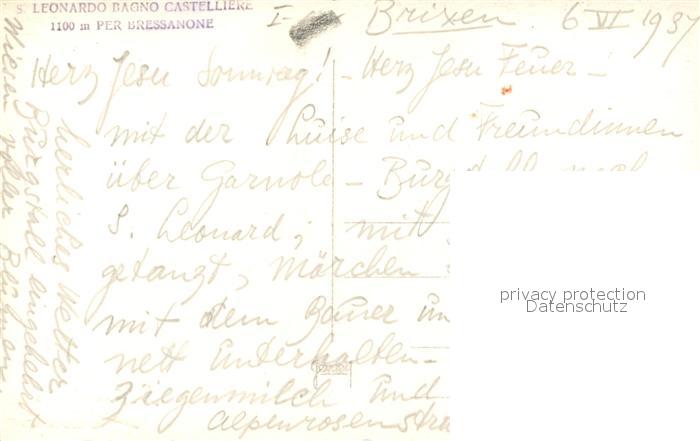 S. LEONARDO BAGNO CASTELLIERE
1100 m PER BRESSANONE
Brixen 6 VI 1937
Herz Jesu Sonntag! - Herz Jesu Feuer -
mit der Luise und Freundinnen
über Garnole - Burgstall nach
S. Leonard; mit
getanzt, Märchen
mit dem Bauer un
nett unterhalten -
Ziegenmilch und
Alpenrosenstra
herrliches Wetter
Burgstall eingekehrt
Wiesen voller Blumen
privacy protection
Datenschutz